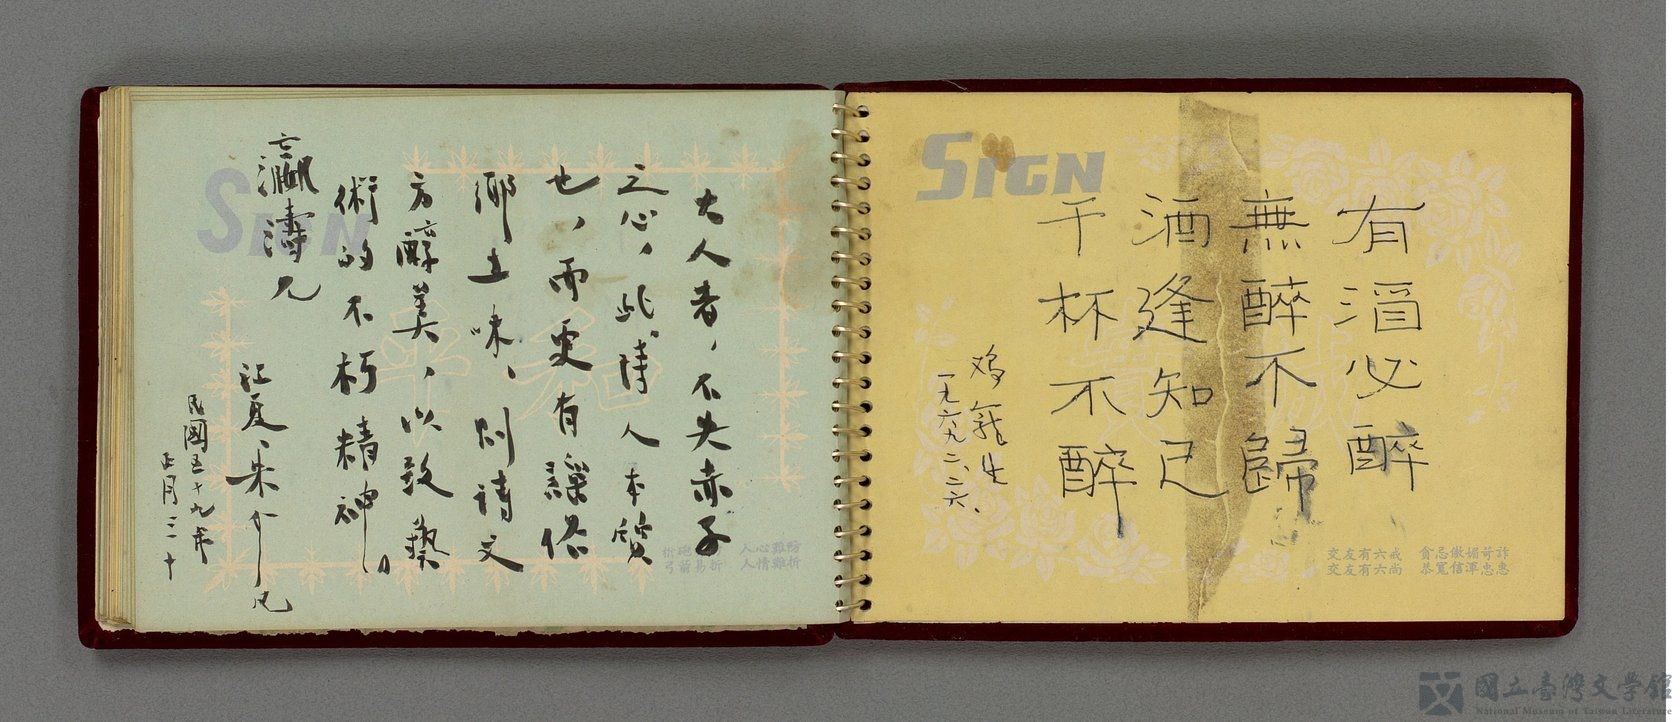 有酒必醉
無醉不歸
酒逢知己
干杯不醉
鸡籠生
一九六九、二、二六、
SIGN
交友有六戒 貪忌傲媚苛詐
交友有六尚 恭寬信渾忠惠
大人者，不失赤子
之心，此詩人本質
也，而更有謡俗
鄉土味、則詩文
方醇美，以致藝
術的不朽精神。
瀛濤兄
江夏、朱介凡
民國五十九年
正月三十
SIGN
人心難防
人情難折
國立臺灣文學館
National Museum of Taiwan Literature